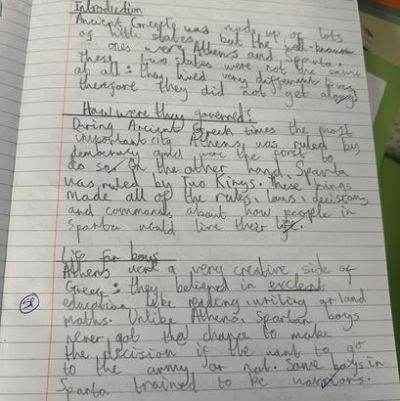 Introduction
Ancient Greece was made up of lots
of little states, but the well-known
ones were Athens and Sparta.
These two states were not the same
at all: they lived very different lives
therefore they did not get along
How were they governed?
During Ancient Greek times the most
important city Athens was ruled by
democracy and were the first to
do so. On the other hand, Sparta
was ruled by Two Kings. These kings
made all of the rules, laws, decisions
and commands about how people in
Sparta would live their life.
Life for boys
Athens were a very creative side of
Greece: they believed in
education like reading, writing and
maths. Unlike Athens, Spartan boys
never got the chance to make
the decision if the want to go
to the army or not. Some boys in
Sparta trained to be warriors.